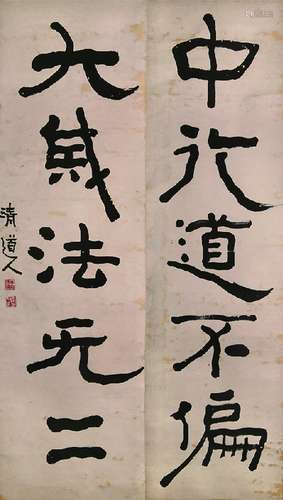 中行道不偏
大法无二
清道人